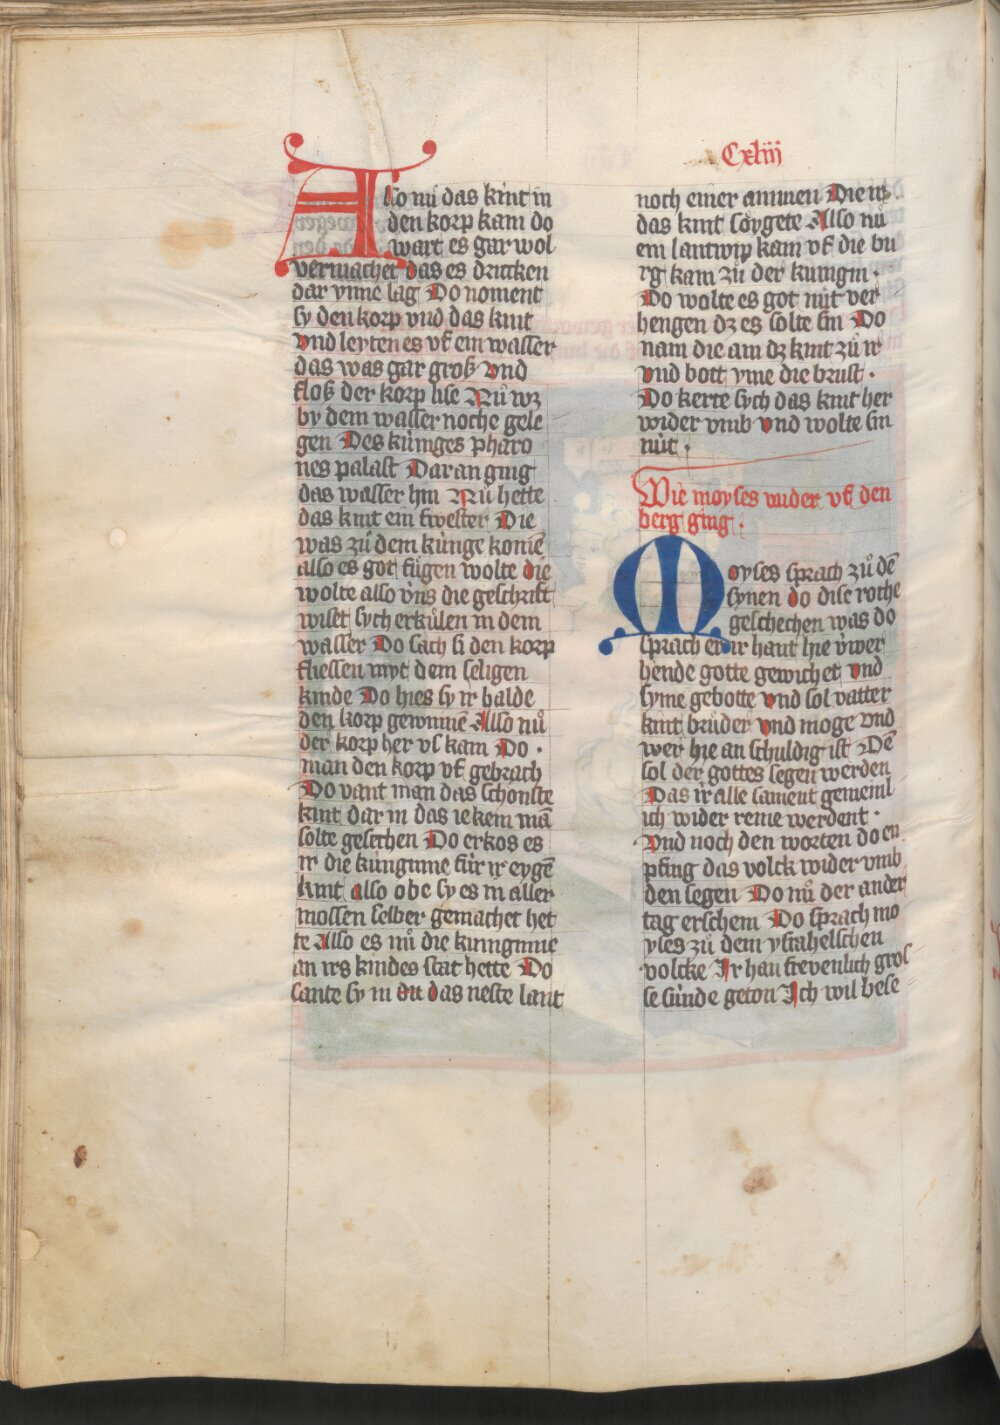 Cxliij
Also nu̍ das kint in
den korp kam do
wart es gar wol
vermachet das es drucken
dar ynne lag Do noment
sy den korp vnd das kint
vnd leyten es vf ein wasser
das was gar groß vnd
floß der korp lise Nu̍ wz
by dem wasser noche gele
gen Des ku̍niges pharo
nes palast Dar an ging
das wasser hin Nu̍ hette
das kint ein swester Die
was zů dem ku̍nge komē
also es got fu̍gen wolte die
wolte also vns die geschrift
wiset sych erku̍len in dem
wasser Do sach si den korp
fliessen myt dem seligen
kinde Do hies sy ir balde
den korp gewinnē Also nů
der korp her vs kam Do ·
man den korp vf gebrach
Do vant man das schonste
kint dar in das ie kein mā
solte gesechen Do erkos es
ir die ku̍nginne fu̍r ir eygē
kint also obe sy es in aller
mossen selber gemachet het
te Also es nů die kunginne
an irs kindes stat hette Do
sante sy in das neste lant
noch einer ammen Die ir
das kint soygete Also nů
ein lantwip kam vf die bu
rg kam zů der kunigin ·
Do wolte es got nu̍t ver
hengen dz es solte sin Do
nam die am dz kint zů ir
vnd bott yme die brust ·
Do kerte sych das kint her
wider vmb vnd wolte sin
nu̍t ·
Wie moyses wider vf den
berg ging ·
Moyses sprach zů dē
synen do dise roche
geschechen was do
sprach er ir hant hie u̍wer
hende gotte gewichet vnd
syme gebotte vnd sol vatter
kint brůder vnd moge vnd
wer hie an schuldig ist Dē
sol der gottes segen werden
Das ir alle sament gemeinl
ich wider reine werdent ·
Vnd noch den worten do en
pfing das volck wider vmb
den segen Do nů der ander
tag erschein Do sprach mo
yses zů dem ysrahelschen
volcke Ir han frevenlich gros
se su̍nde geton Ich wil bese